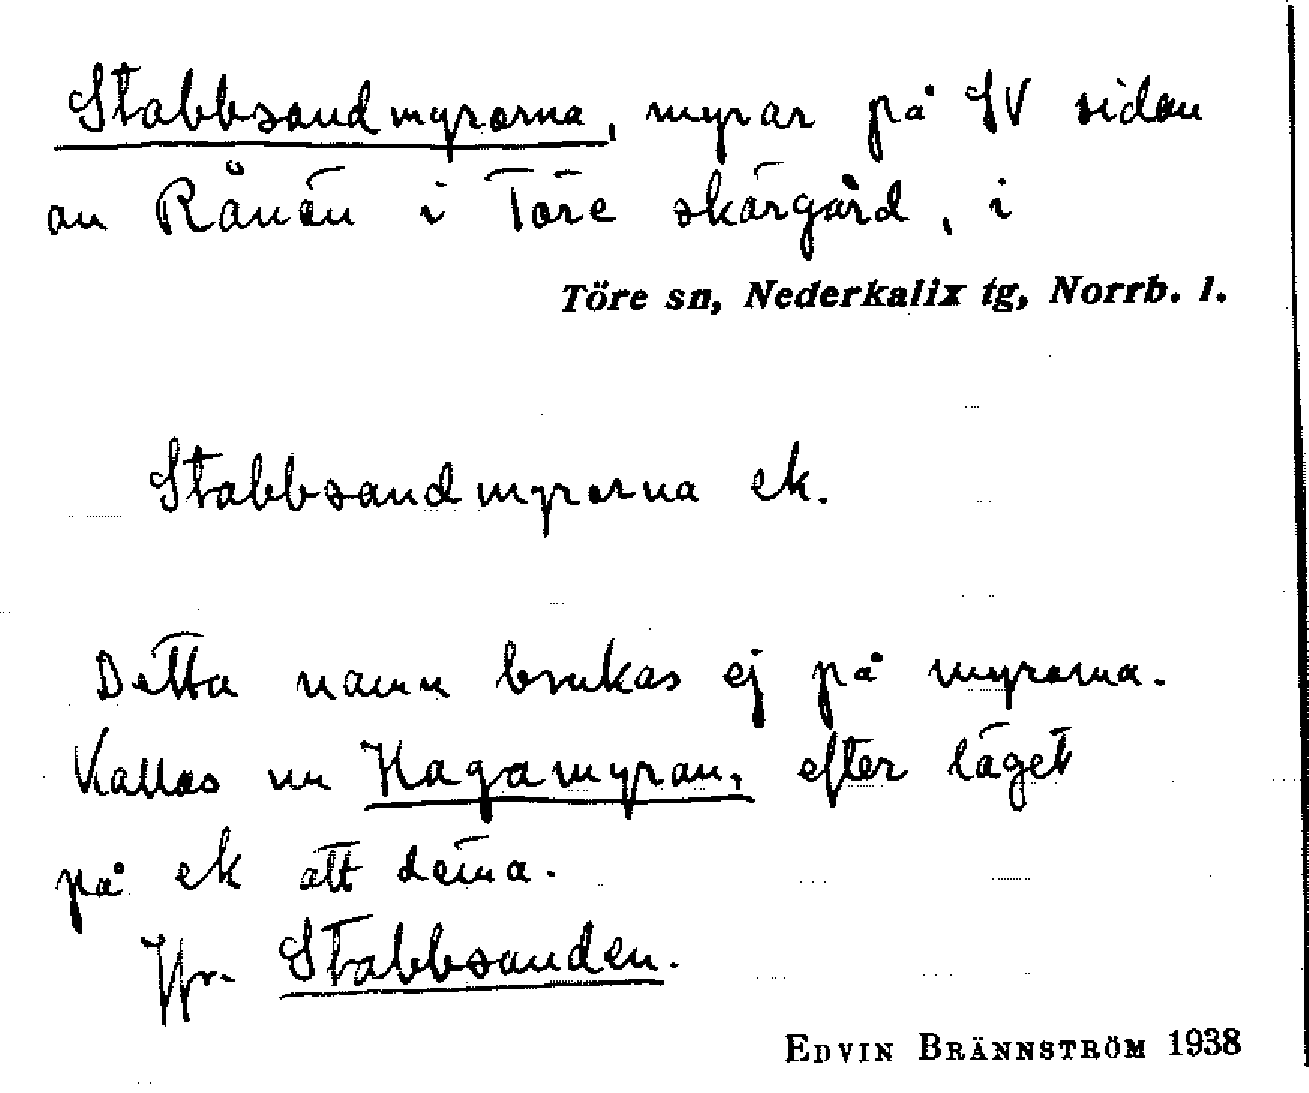 Stabbsandmyrorna, myrar på SV sidan
av Rånön i Töre skärgård, i
Töre sn, Nederkalix tg, Norrb. l.
Stabbsandmyrorna ek.
Detta namn brukas ej på myrorna.
Kallas nu Hagamyran, efter läget
på ek att döma.
Jfr. Stabbsanden.
EDVIN BRÄNNSTRÖM 1938